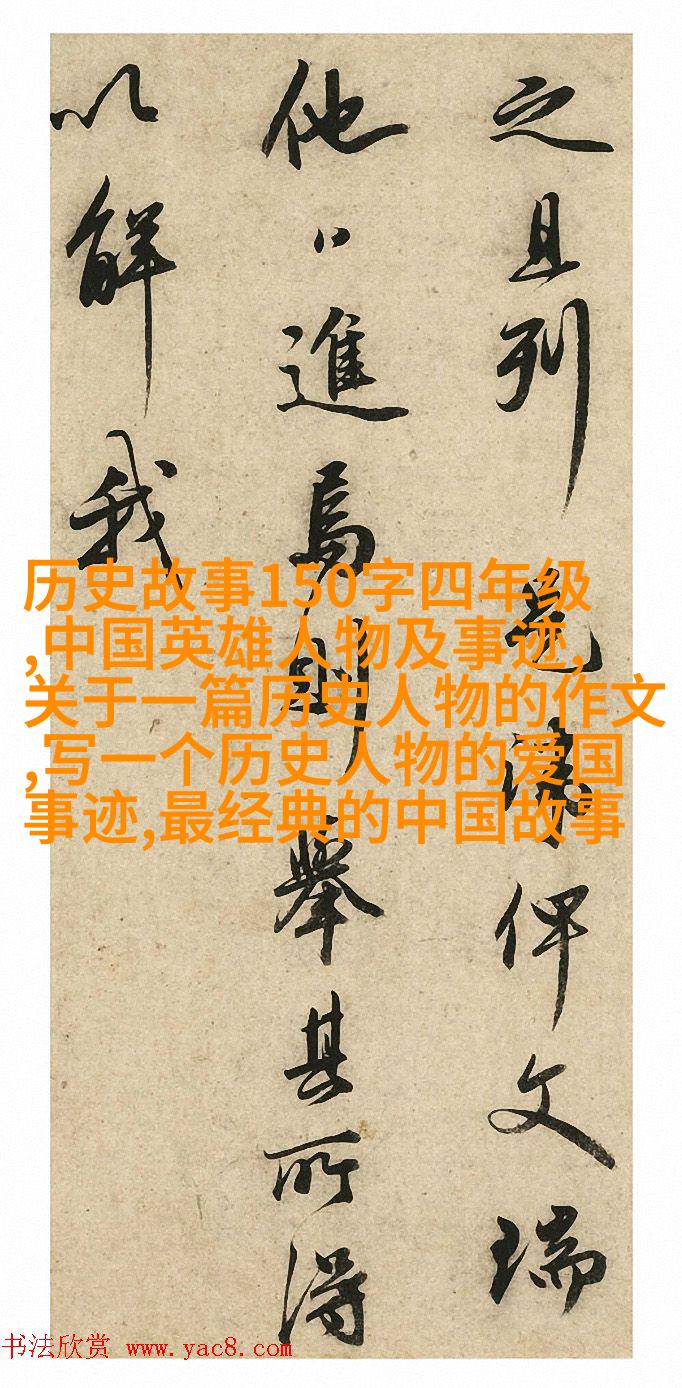 之且列俾文瑞
他進焉則舉其所得
以解我
历史故事150字四年级
,中国英雄人物及事迹,
关于一篇历史人物的作文
,写一个历史人物的爱国
事迹,最经典的中国故事
书法欣赏 www.yac8.com